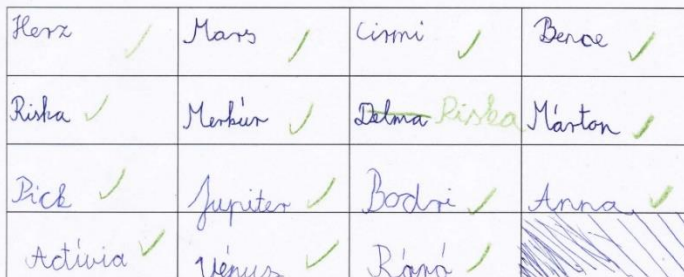 Herz Mars Cirmi Bence
Riska Merkúr Delma Riska Márton
Pick Jupiter Bodri Anna
Activia Vénusz Ráró